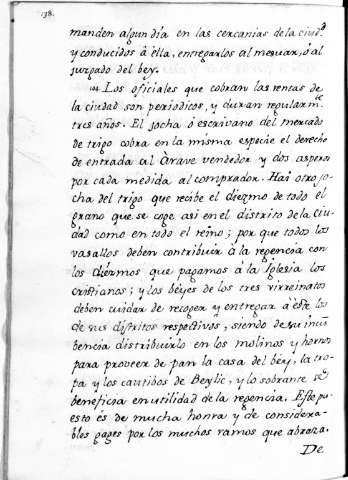 138.
manden algun dia en las cercanias de la ciud.d
y conducidos â ella, entregarlos al mesuar, ó al
juzgado del bey.
Los oficiales que cobran las rentas de
la ciudad son periodicos, y duran regularm.te
tres años. El jocha ó escrivano del mercado
de trigo cobra en la misma especie el derecho
de entrada al Arave vendedor y dos asperos
por cada medida al comprador. Hai otro jo-
cha del trigo que recibe el diezmo de todo el
grano que se coge asi en el distrito de la ciu-
dad como en todo el reino; por que todos los
vasallos deben contribuir à la regencia con
los diezmos que pagamos á la Iglesia los
cristianos; y los béyes de los tres virreinatos
deben cuidar de recoger y entregar à éste los
de sus distritos respectivos, siendo de su incum
bencia distribuirlo en los molinos y hornos
para proveer de pan la casa del béy, la tro-
pa y los cautibos de Beylic, y lo sobrante se
beneficia en utilidad de la regencia. Este pu-
esto és de mucha honra y de considera-
bles gages por los muchos ramos que abraza.
De